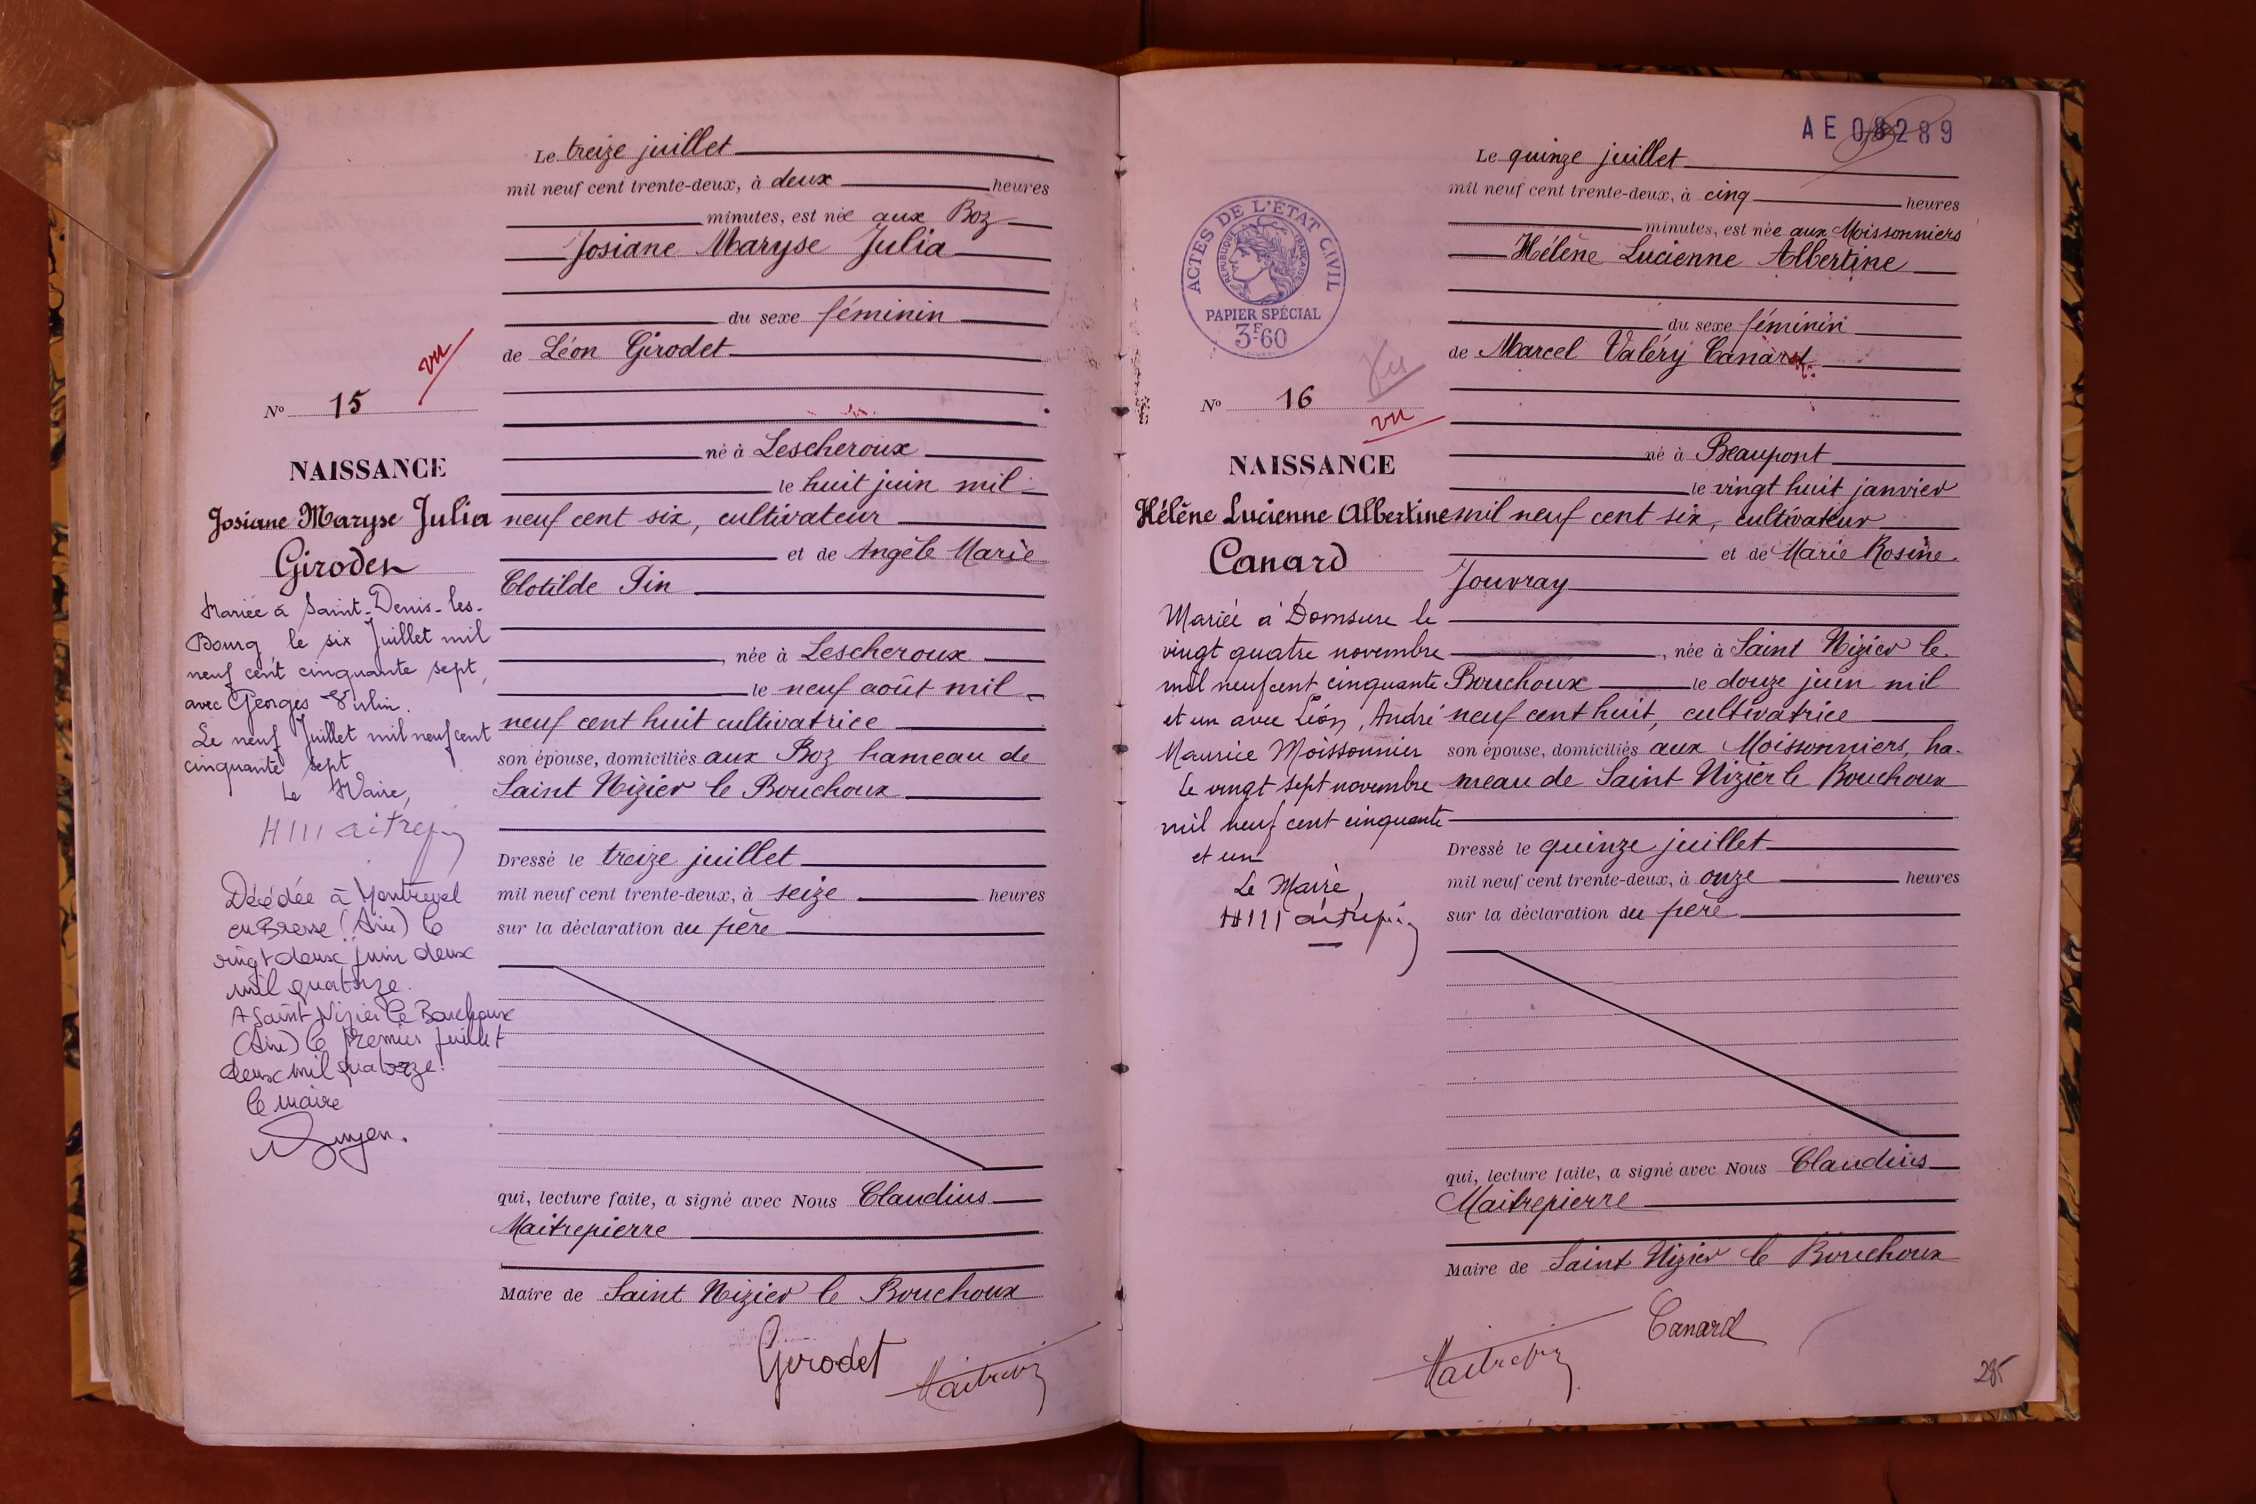 Le treize juillet
mil neuf cent trente-deux, à deux heures
minutes, est née aux Boz
Josiane Maryse Julia
du sexe féminin
de Léon Girodet
vu
N° 15
né à Lescheroux
NAISSANCE
le huit juin mil
Josiane Maryse Julia
neuf cent six, cultivateur
Girodet
et de Angèle Marie
Clotilde Pin
Mariée à Saint-Denis-les-
Bourg, le six Juillet mil
neuf cent cinquante sept,
avec Georges
Le neuf Juillet mil neuf cent
cinquante sept
Le Maire,
née à Lescheroux
le neuf août mil
neuf cent huit cultivatrice
son épouse, domiciliés aux Boz hameau de
Saint Nizier le Bouchoux
Dressé le treize juillet
mil neuf cent trente-deux, à seize heures
sur la déclaration du père
Décédée à Montrevel
en Bresse (Ain) le
vingt deux juin deux
mil quatorze.
A Saint Nizier le Bouchoux
(Ain) le premier juillet
deux mil quatorze
le maire
qui, lecture faite, a signé avec Nous Claudius
Maitrepierre
Maire de Saint Nizier le Bouchoux
Girodet
AE 08289
Le quinze juillet
mil neuf cent trente-deux, à cinq heures
minutes, est née aux Moissonniers
Hélène Lucienne Albertine
ACTES DE L'ÉTAT CIVIL
RÉPUBLIQUE FRANÇAISE
PAPIER SPÉCIAL
3F.60
du sexe féminin
de Marcel Valéry Canard
N° 16
vu
né à Beaupont
NAISSANCE
le vingt huit janvier
Hélène Lucienne Albertine
mil neuf cent six, cultivateur
Canard
et de Marie Rosine
Jouvray
Mariée à Domsure le
vingt quatre novembre
mil neuf cent cinquante
et un avec Léon, André
Maurice Moissonnier
Le vingt sept novembre
mil neuf cent cinquante
et un
Le Maire,
née à Saint Nizier le
Bouchoux le douze juin mil
neuf cent huit, cultivatrice
son épouse, domiciliés aux Moissonniers, ha-
meau de Saint Nizier le Bouchoux
Dressé le quinze juillet
mil neuf cent trente-deux, à onze heures
sur la déclaration du père
qui, lecture faite, a signé avec Nous Claudius
Maitrepierre
Maire de Saint Nizier le Bouchoux
Canard
285